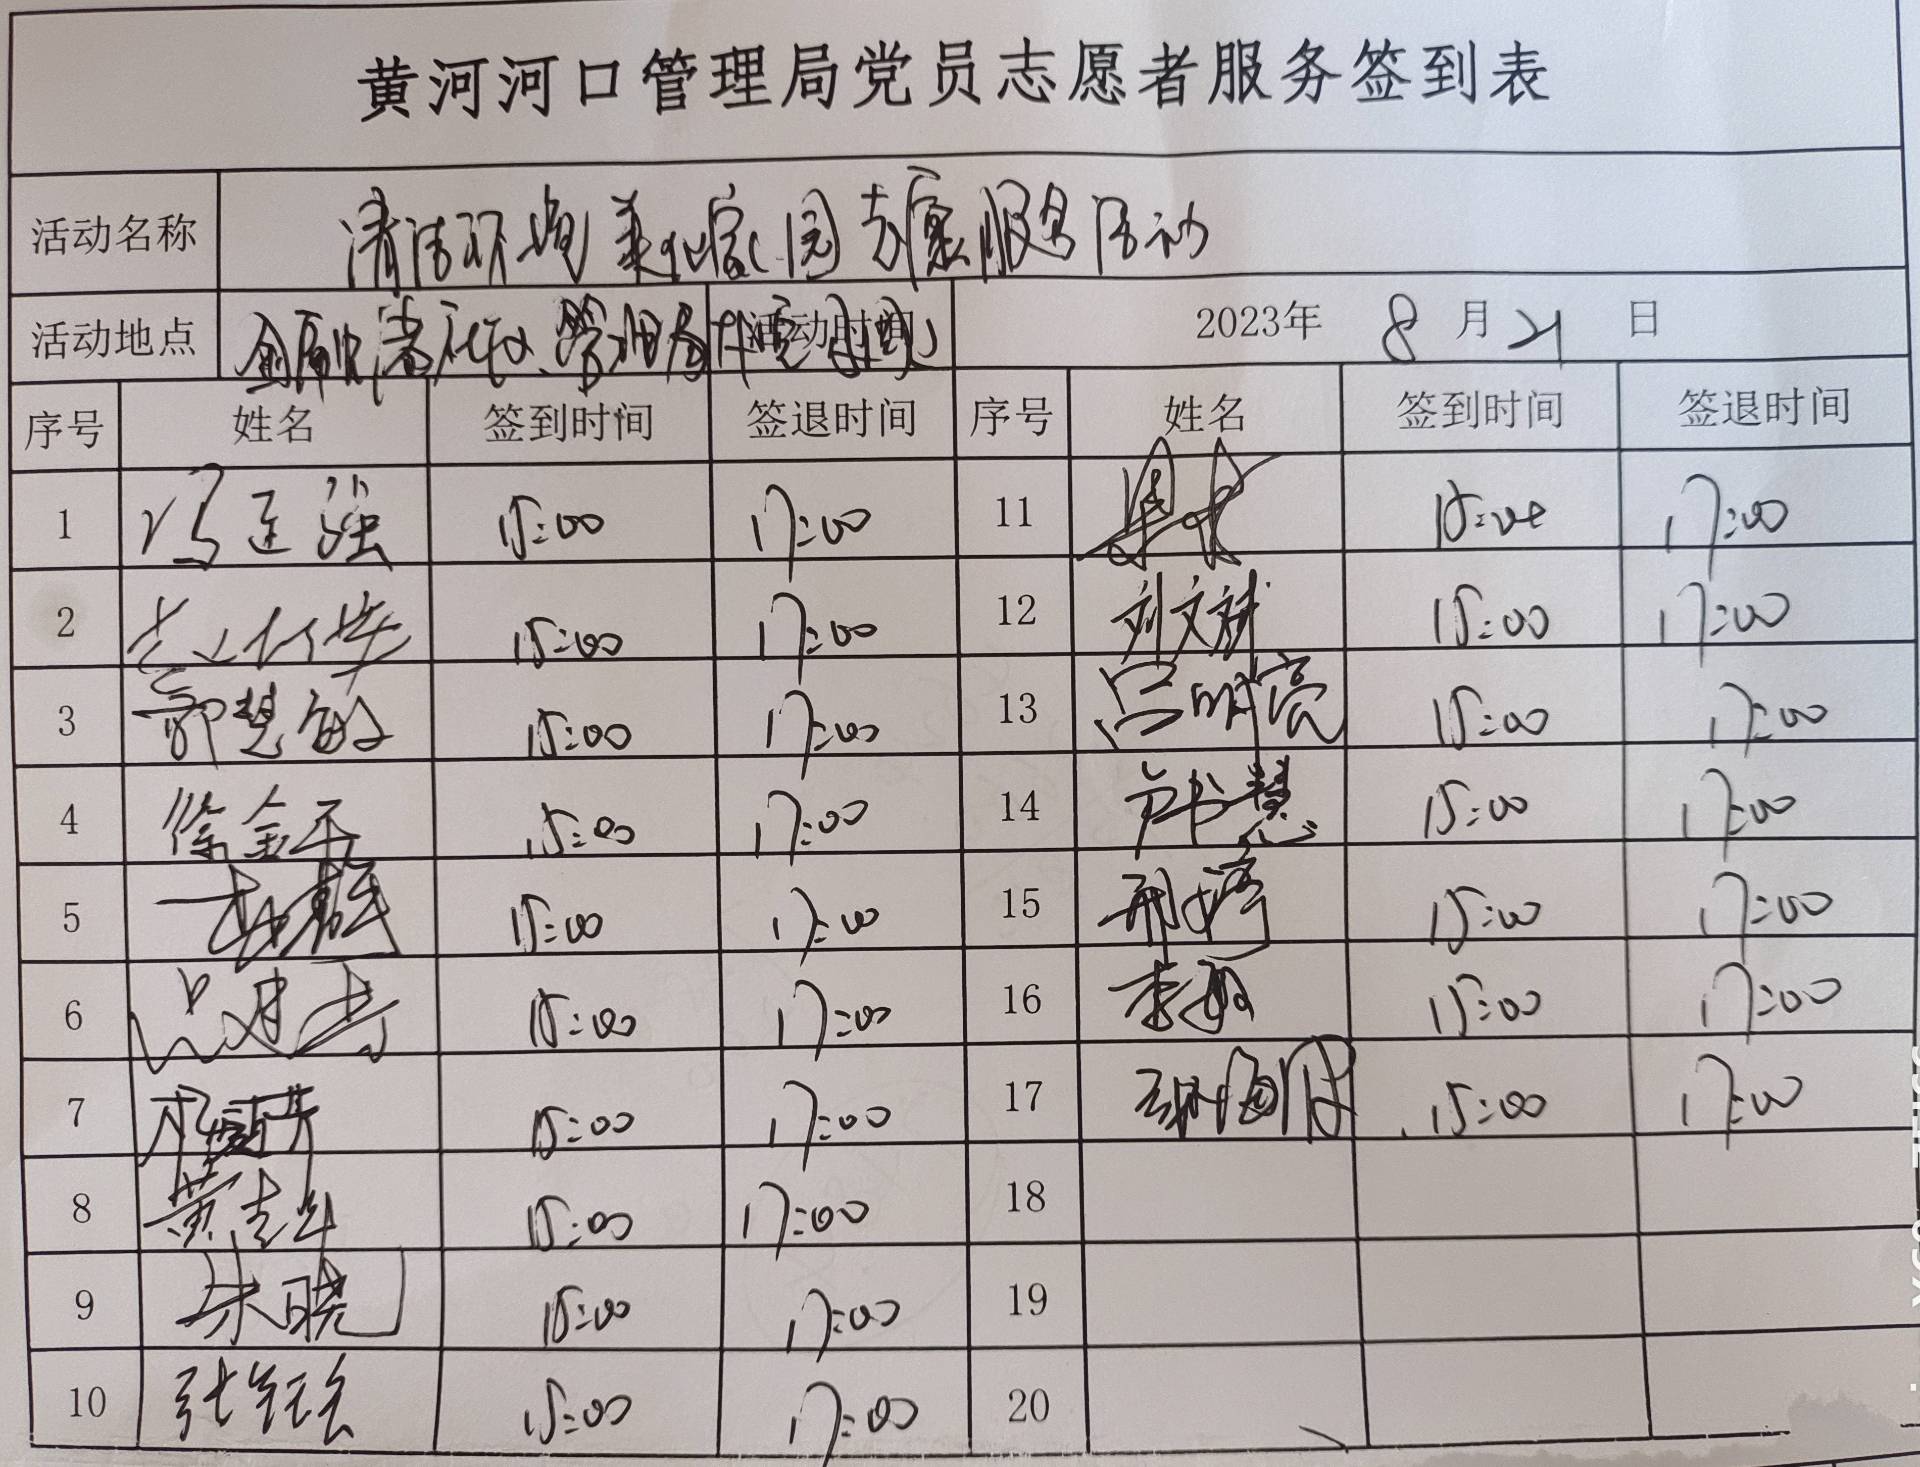 黄河河口管理局党员志愿者服务签到表
活动名称 清洁环境 美化家园 志愿服务活动
活动地点 活动时间 2023年 8 月 21 日
序号 姓名 签到时间 签退时间 序号 姓名 签到时间 签退时间
1 冯连强 15:00 17:00 11 15:00 17:00
2 15:00 17:00 12 刘文斌 15:00 17:00
3 郭慧敏 15:00 17:00 13 吕明亮 15:00 17:00
4 徐金平 15:00 17:00 14 卢书慧 15:00 17:00
5 15:00 17:00 15 邢婷 15:00 17:00
6 15:00 17:00 16 李敏 15:00 17:00
7 15:00 17:00 17 15:00 17:00
8 黄志 15:00 17:00 18
9 朱晓 15:00 17:00 19
10 张 15:00 17:00 20